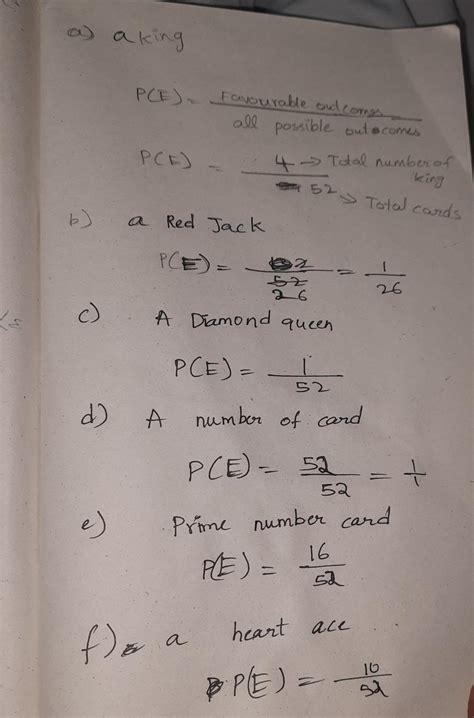 a) a king
P(E) = Favourable outcomes
all possible outcomes
P(E) = 4 → Total number of
king
52 → Total cards
b) a Red Jack
P(E) = 2 = 1
52 26
26
c) A Diamond queen
P(E) = 1
52
d) A number of card
P(E) = 52 = 1
52 1
e) Prime number card
P(E) = 16
52
f) a heart ace
P(E) = 10
52